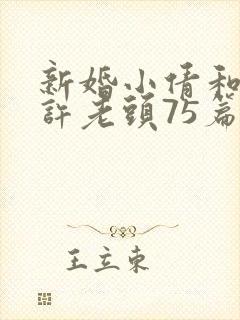 新婚小倩和
許老頭75篇
王立東